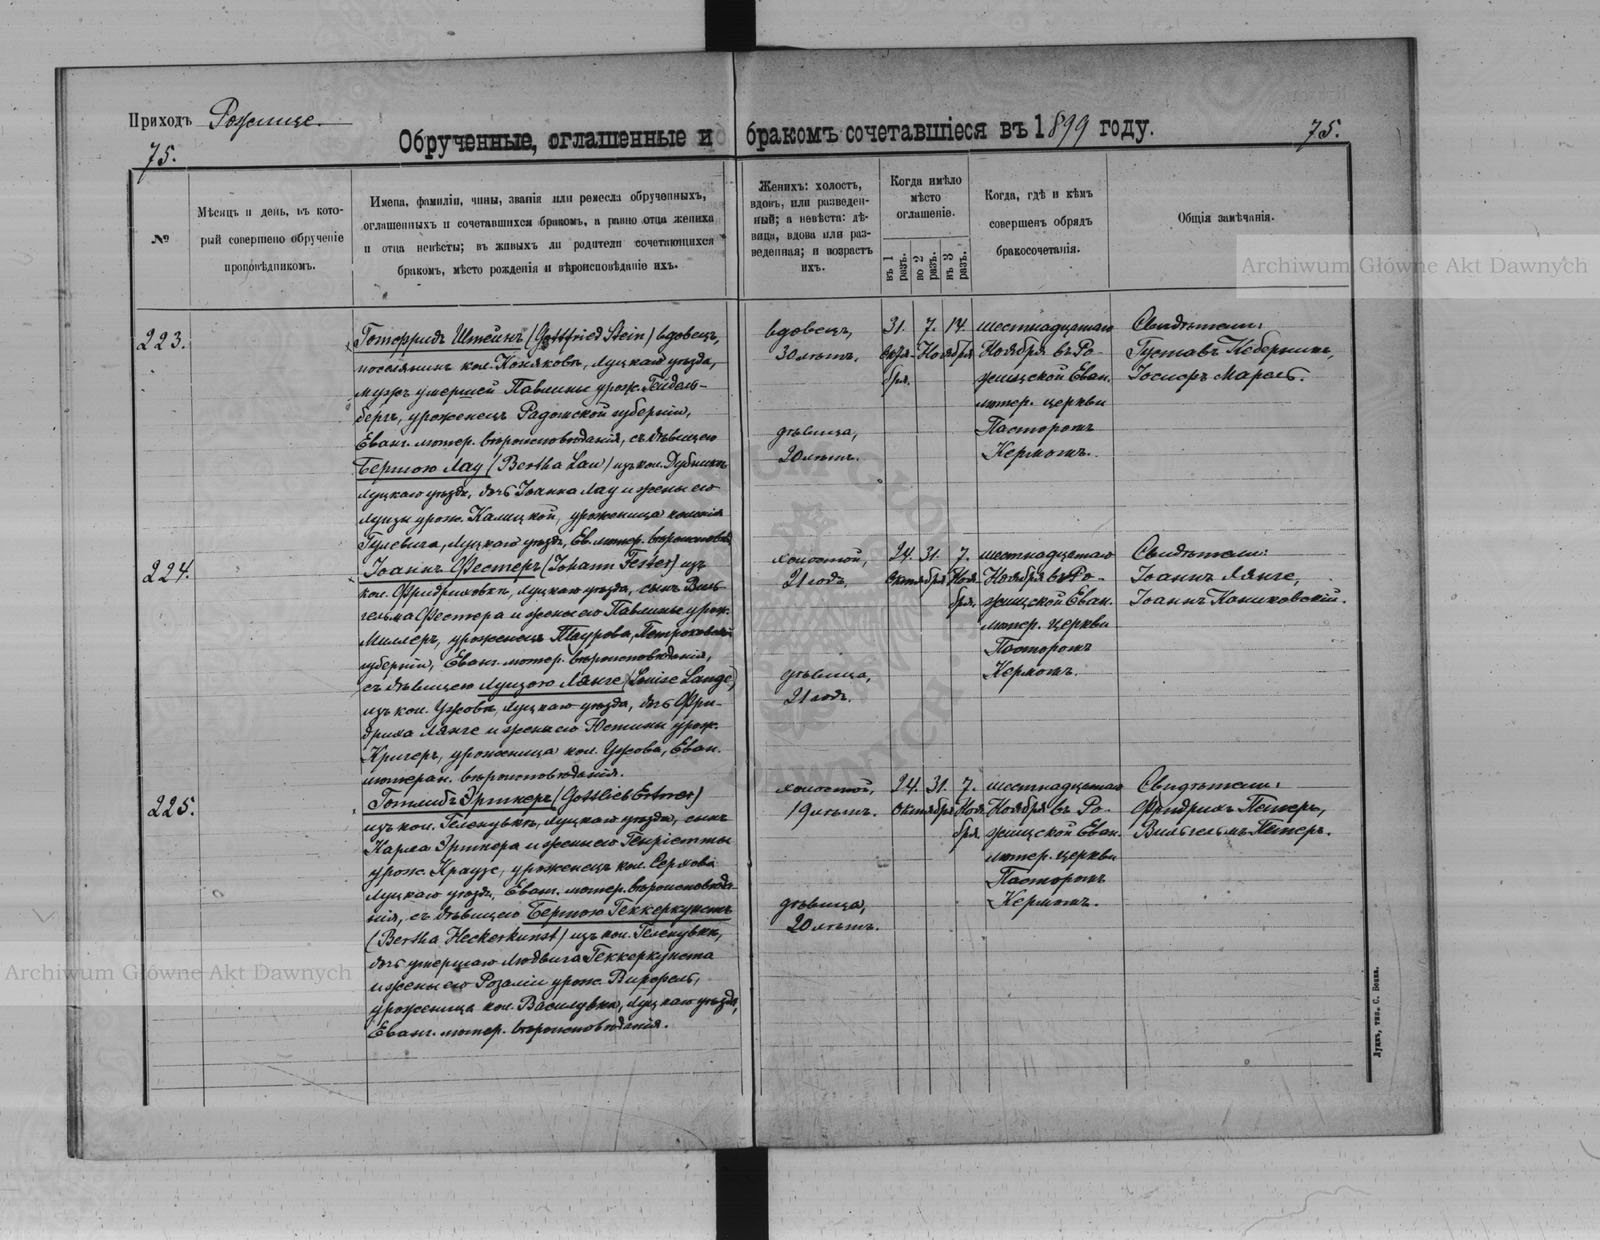 Приходъ Рожище.
Обрученные, оглашенные и бракомъ сочетавшіеся въ 1899 году.
75.
75.
№
Мѣсяцъ и день, въ кото-
рый совершено обрученіе
проповѣдникомъ.
Имена, фамиліи, чины, званія или ремесла обрученныхъ,
оглашенныхъ и сочетавшихся бракомъ, а равно отца жениха
и отца невѣсты; въ живыхъ ли родители сочетающихся
бракомъ, мѣсто рожденія и вѣроисповѣданіе ихъ.
Женихъ: холостъ,
вдовъ, или разведен-
ный; а невѣста: дѣ-
вица, вдова или раз-
веденная; и возрастъ
ихъ.
Когда имѣло
мѣсто
оглашеніе.
въ 1 разъ.
во 2 разъ.
въ 3 разъ.
Когда, гдѣ и кѣмъ
совершенъ обрядъ
бракосочетанія.
Общія замѣчанія.
223.
Готфридъ Штейнъ (Gottfried Stein) вдовецъ,
поселянинъ кол. Конякова, Луцкаго уѣзда,
мужъ умершей Павлины урож. Гейдель-
бергъ, уроженецъ Радомской губерніи,
Еванг. лютер. вѣроисповѣданія, съ дѣвицею
Бертою Лау (Bertha Lau) изъ кол.
Луцкаго уѣзда, дочь Іоанна Лау и жены его
Луизы урож. Калицкой, уроженица колоніи
Гулевича, Луцкаго уѣзда, Ев. лютер. вѣроисповѣд.
вдовецъ,
30 лѣтъ.
дѣвица,
20 лѣтъ.
31. 7. 14.
Октя- Ноября
бря.
шестнадцатаго
Ноября въ Ро-
жищской Еван.
лютер. церкви
Пасторомъ
Кермомъ.
Свидѣтели:
Густавъ Кеберникъ,
Іосифъ Марсъ.
224.
Іоаннъ Фестеръ (Johann Fester) изъ
кол. Фридриховки, Луцкаго уѣзда, сынъ Виль-
гельма Фестера и жены его Павлины урож.
Миллеръ, уроженецъ Петроковской
губерніи, Еванг. лютер. вѣроисповѣданія,
съ дѣвицею Луизою Лянге (Louise Lange)
изъ кол. Ужова, Луцкаго уѣзда, дочь Фри-
дриха Лянге и жены его Юстины урож.
Кригеръ, уроженица кол. Ужова, Еван.
лютеран. вѣроисповѣданія.
холостой,
21 годъ.
дѣвица,
21 годъ.
24. 31. 7.
Октября Ноя-
бря.
шестнадцатаго
Ноября въ Ро-
жищской Еван.
лютер. церкви
Пасторомъ
Кермомъ.
Свидѣтели:
Іоаннъ Лянге,
Іоаннъ Каниковскій.
225.
Готлибъ Эртнеръ (Gottlieb Ertner)
изъ кол. Геленувки, Луцкаго уѣзда, сынъ
Карла Эртнера и жены его Генріетты
урож. Краузе, уроженецъ кол.
Луцкаго уѣзда, Еванг. лютер. вѣроисповѣда-
нія, съ дѣвицею Бертою Геккеркунстъ
(Bertha Heckerkunst) изъ кол. Геленувки,
дочь умершаго Людвига Геккеркунста
и жены его Розаліи урож.
уроженица кол. Василувки, Луцкаго уѣзда,
Еванг. лютер. вѣроисповѣданія.
холостой,
19 лѣтъ.
дѣвица,
20 лѣтъ.
24. 31. 7.
Октября Ноя-
бря
шестнадцатаго
Ноября въ Ро-
жищской Еван.
лютер. церкви
Пасторомъ
Кермомъ.
Свидѣтели:
Фридрихъ Петеръ,
Вильгельмъ Петеръ.
Луцкъ, тип. С. Бокка.
Archiwum Główne Akt Dawnych
Archiwum Główne Akt Dawnych